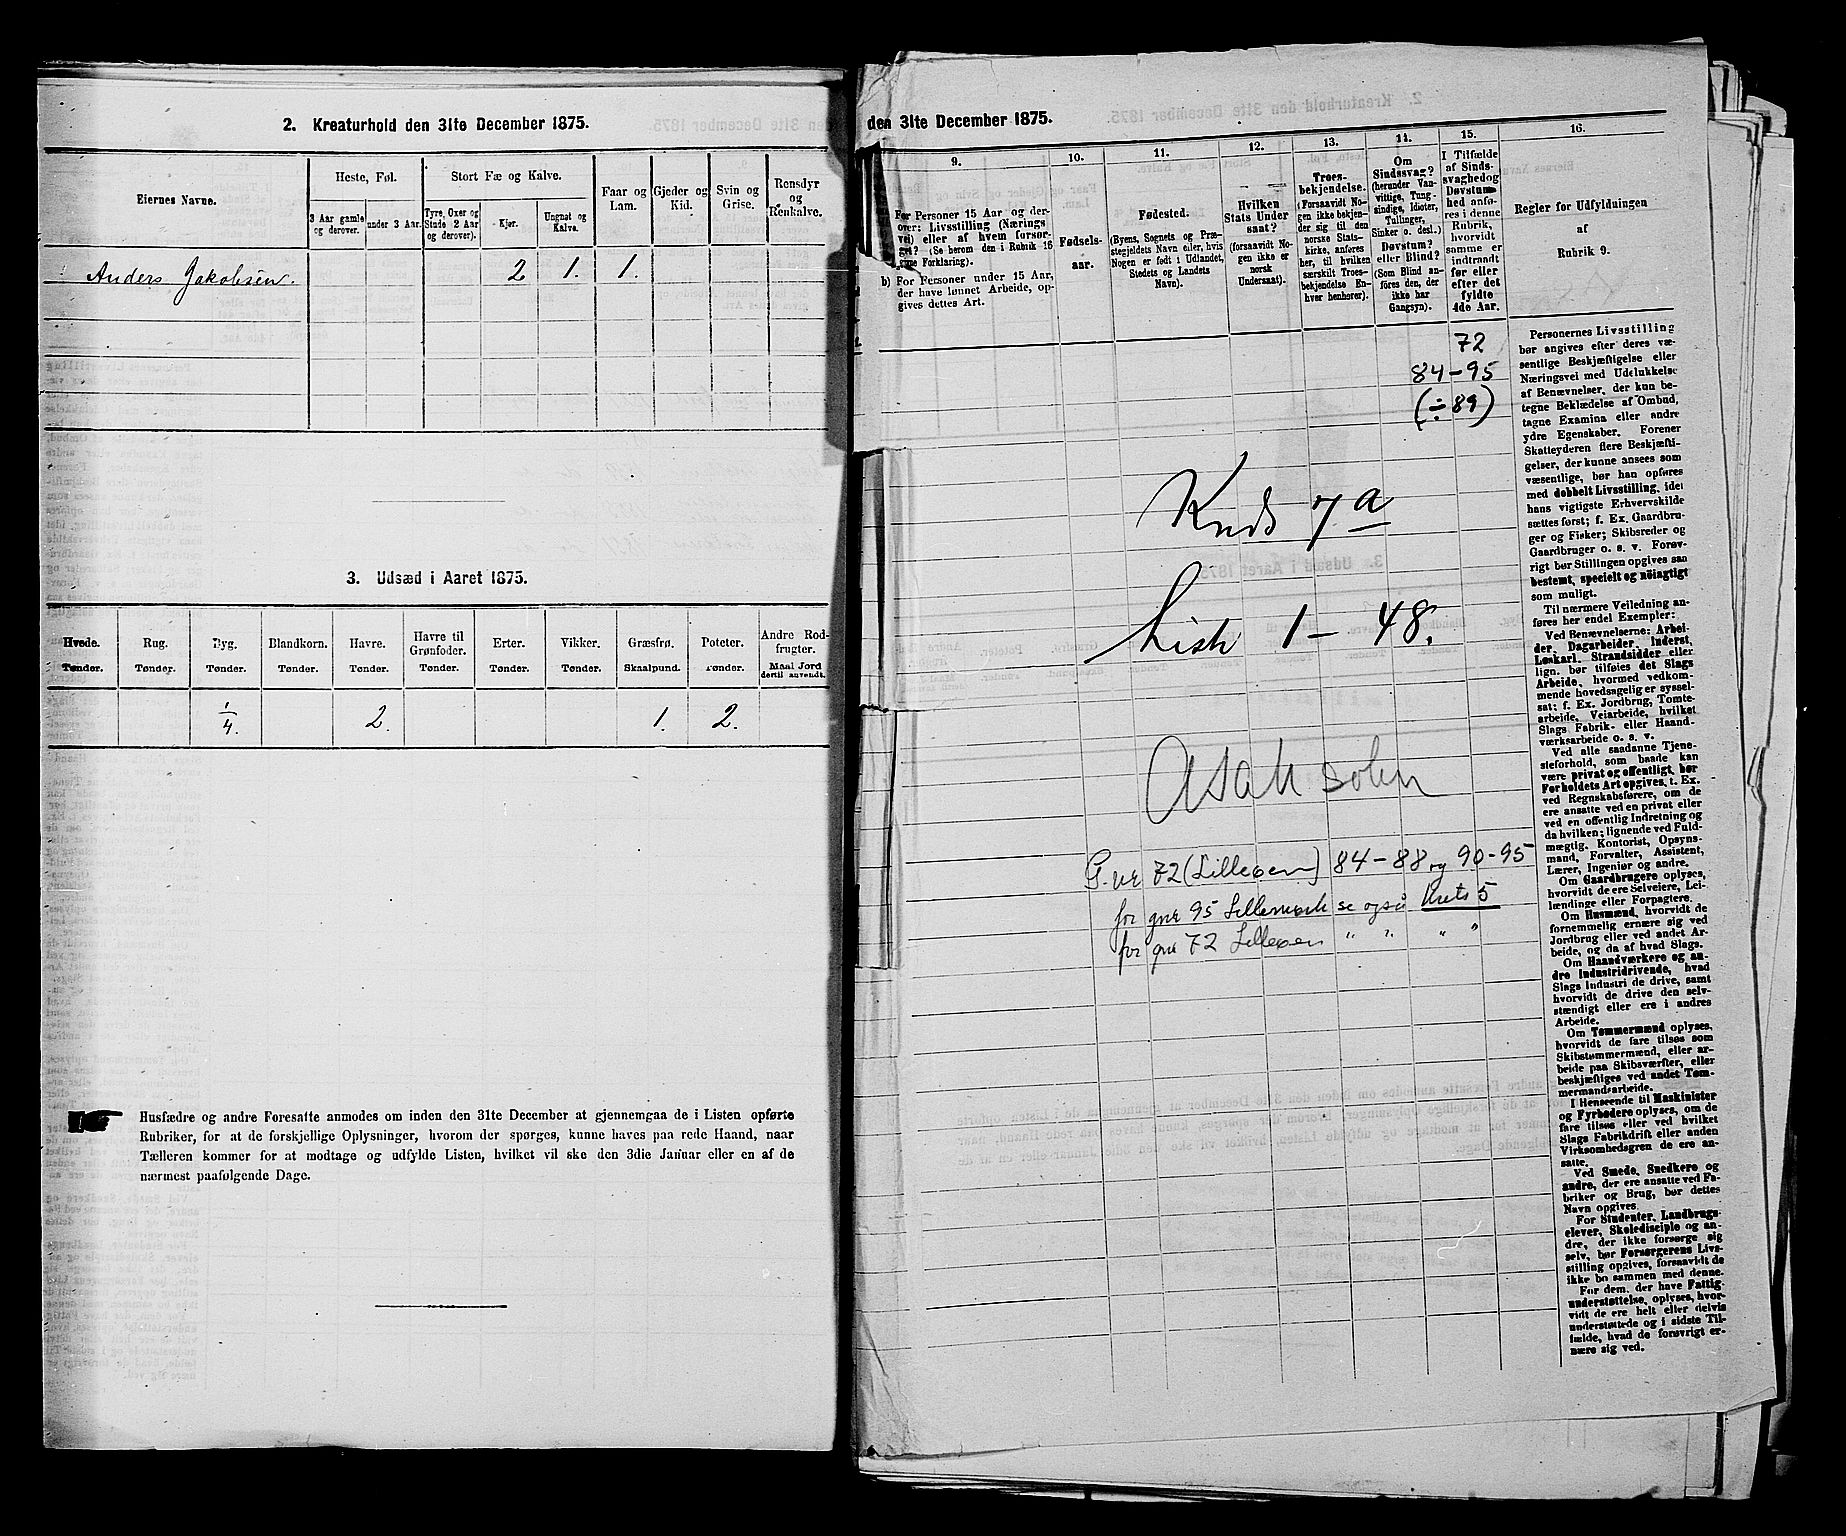 2. Kreaturhold den 31te December 1875.
Eiernes Navne.
Heste, Føl.
3 Aar gamle og derover.
under 3 Aar.
Stort Fæ og Kalve.
Tyre, Oxer og Stude 2 Aar og derover).
Kjør.
Ungnøt og Kalve.
Faar og Lam.
Gjeder og Kid.
Svin og Grise.
Rensdyr og Renkalve.
Anders Jakobsen. 2 1. 1.
3. Udsæd i Aaret 1875.
Hvede. Rug. Byg. Blandkorn. Havre. Havre til Grønfoder. Erter. Vikker. Græsfrø. Poteter. Andre Rodfrugter.
Tønder. Tønder. Tønder. Tønder. Tønder. Tønder. Tønder. Tønder. Skaalpund. Tønder. Maal Jord dertil anvendt.
1/4. 2. 1. 2.
Husfædre og andre Foresatte anmodes om inden den 31te December at gjennemgaa de i Listen opførte
Rubriker, for at de forskjellige Oplysninger, hvorom der spørges, kunne haves paa rede Haand, naar
Tælleren kommer for at modtage og udfylde Listen, hvilket vil ske den 3die Januar eller en af de
nærmest paafølgende Dage.
den 31te December 1875.
9. 10. 11. 12. 13. 14. 15. 16.
For Personer 15 Aar og derover: Livsstilling (Næringsvei) eller af hvem forsørget? (Se herom den i Rubrik 16 givne Forklaring).
b) For Personer under 15 Aar, der have lønnet Arbeide, opgives dettes Art.
Fødsels-
aar.
Fødested.
(Byens, Sognets og Præstegjeldets Navn eller, hvis Nogen er født i Udlandet, Stedets og Landets Navn).
Hvilken Stats Undersaat?
(forsaavidt Nogen ikke er norsk Undersaat).
Troesbekjendelse.
(Forsaavidt Nogen ikke bekjender sig til den norske Statskirke, anføres her, til hvilken særskilt Troesbekjendelse Enhver henhører).
Om Sindssvag?
(herunder Vanvittige, Tungsindige, Idioter, Tullinger, Sinker o. desl.)
Døvstum? eller Blind?
(Som Blind anføres den, der ikke har Gangsyn).
I Tilfælde af Sindssvaghedog Døvstumhed anføres i denne Rubrik, hvorvidt samme er indtraadt før eller efter det fyldte 4de Aar.
Regler for Udfyldningen
af
Rubrik 9.
72
84-95
(÷89)
Krds 7a
Liste 1 - 48.
Asak sokn
G.nr 72 (Lilleøen) 84-88 og 90-95
for gnr 95 Lillemork se også Krets 5
for gnr 72 Lilleøen " " " "
Personernes Livsstilling
bør angives efter deres væ-
sentlige Beskjæftigelse eller
Næringsvei med Udelukkelse
af Benævnelser, der kun be-
tegne Beklædelse af Ombud,
tagne Examina eller andre
ydre Egenskaber. Forener
Skatteyderen flere Beskjæfti-
gelser, der kunne ansees som
væsentlige, bør han opføres
med dobbelt Livsstilling, idet
hans vigtigste Erhvervskilde
sættes først; f. Ex. Gaardbru-
ger og Fisker; Skibsreder og
Gaardbruger o. s. v. Forøv-
rigt bør Stillingen opgives saa
bestemt, specielt og nøiagtigt
som muligt.
Til nærmere Veiledning an-
føres her endel Exempler:
Ved Benævnelserne: Arbei-
der, Dagarbeider, Inderst,
Løskarl, Strandsidder eller
lign. bør tilføies det Slags
Arbeide, hvormed vedkom-
mende hovedsagelig er syssel-
sat; f. Ex. Jordbrug, Tomte-
arbeide, Veiarbeide, hvilket
Slags Fabrik- eller Haand-
værksarbeide o. s. v.
Ved alle saadanne Tjene-
steforhold, som baade kan
være privat og offentligt, bør
Forholdets Art opgives, t. Ex.
ved Regnskabsførere, om de
ere ansatte ved en privat eller
ved en offentlig Indretning og
da hvilken; lignende ved Fuld-
mægtig, Kontorist, Opsyns-
mand, Forvalter, Assistent,
Lærer, Ingeniør og andre.
Om Gaardbrugere oplyses,
hvorvidt de ere Selveiere, Lei-
lændinge eller Forpagtere.
Om Husmænd, hvorvidt de
fornemmelig ernære sig ved
Jordbrug eller ved andet Ar-
beide, og da af hvad Slags.
Om Haandværkere og an-
dre Industridrivende, hvad
Slags Industri de drive, samt
hvorvidt de drive den selv-
stændigt eller ere i andres
Arbeide.
Om Tømmermænd oplyses,
hvorvidt de fare tilsøs som
Skibstømmermænd, eller ar-
beide paa Skibsværfter, eller
beskjæftiges ved andet Tøm-
mermandsarbeide.
I Henseende til Maskinister
og Fyrbødere oplyses, om de
fare tilsøs eller ved hvilket
Slags Fabrikdrift eller anden
Virksomhedsgren de ere an-
satte.
Ved Smede, Snedkere og
andre, der ere ansatte ved Fa-
briker og Brug, bør dettes
Navn opgives.
For Studenter, Landbrugs-
elever, Skoledisciple og an-
dre, der ikke forsørge sig
selv, bør Forsørgerens Livs-
stilling opgives, forsaavidt de
ikke bo sammen med denne.
For dem, der have Fattig-
understøttelse, oplyses, hvor-
vidt de ere helt eller delvis
understøttede og i sidste Til-
fælde, hvad de forøvrigt er-
nære sig ved.